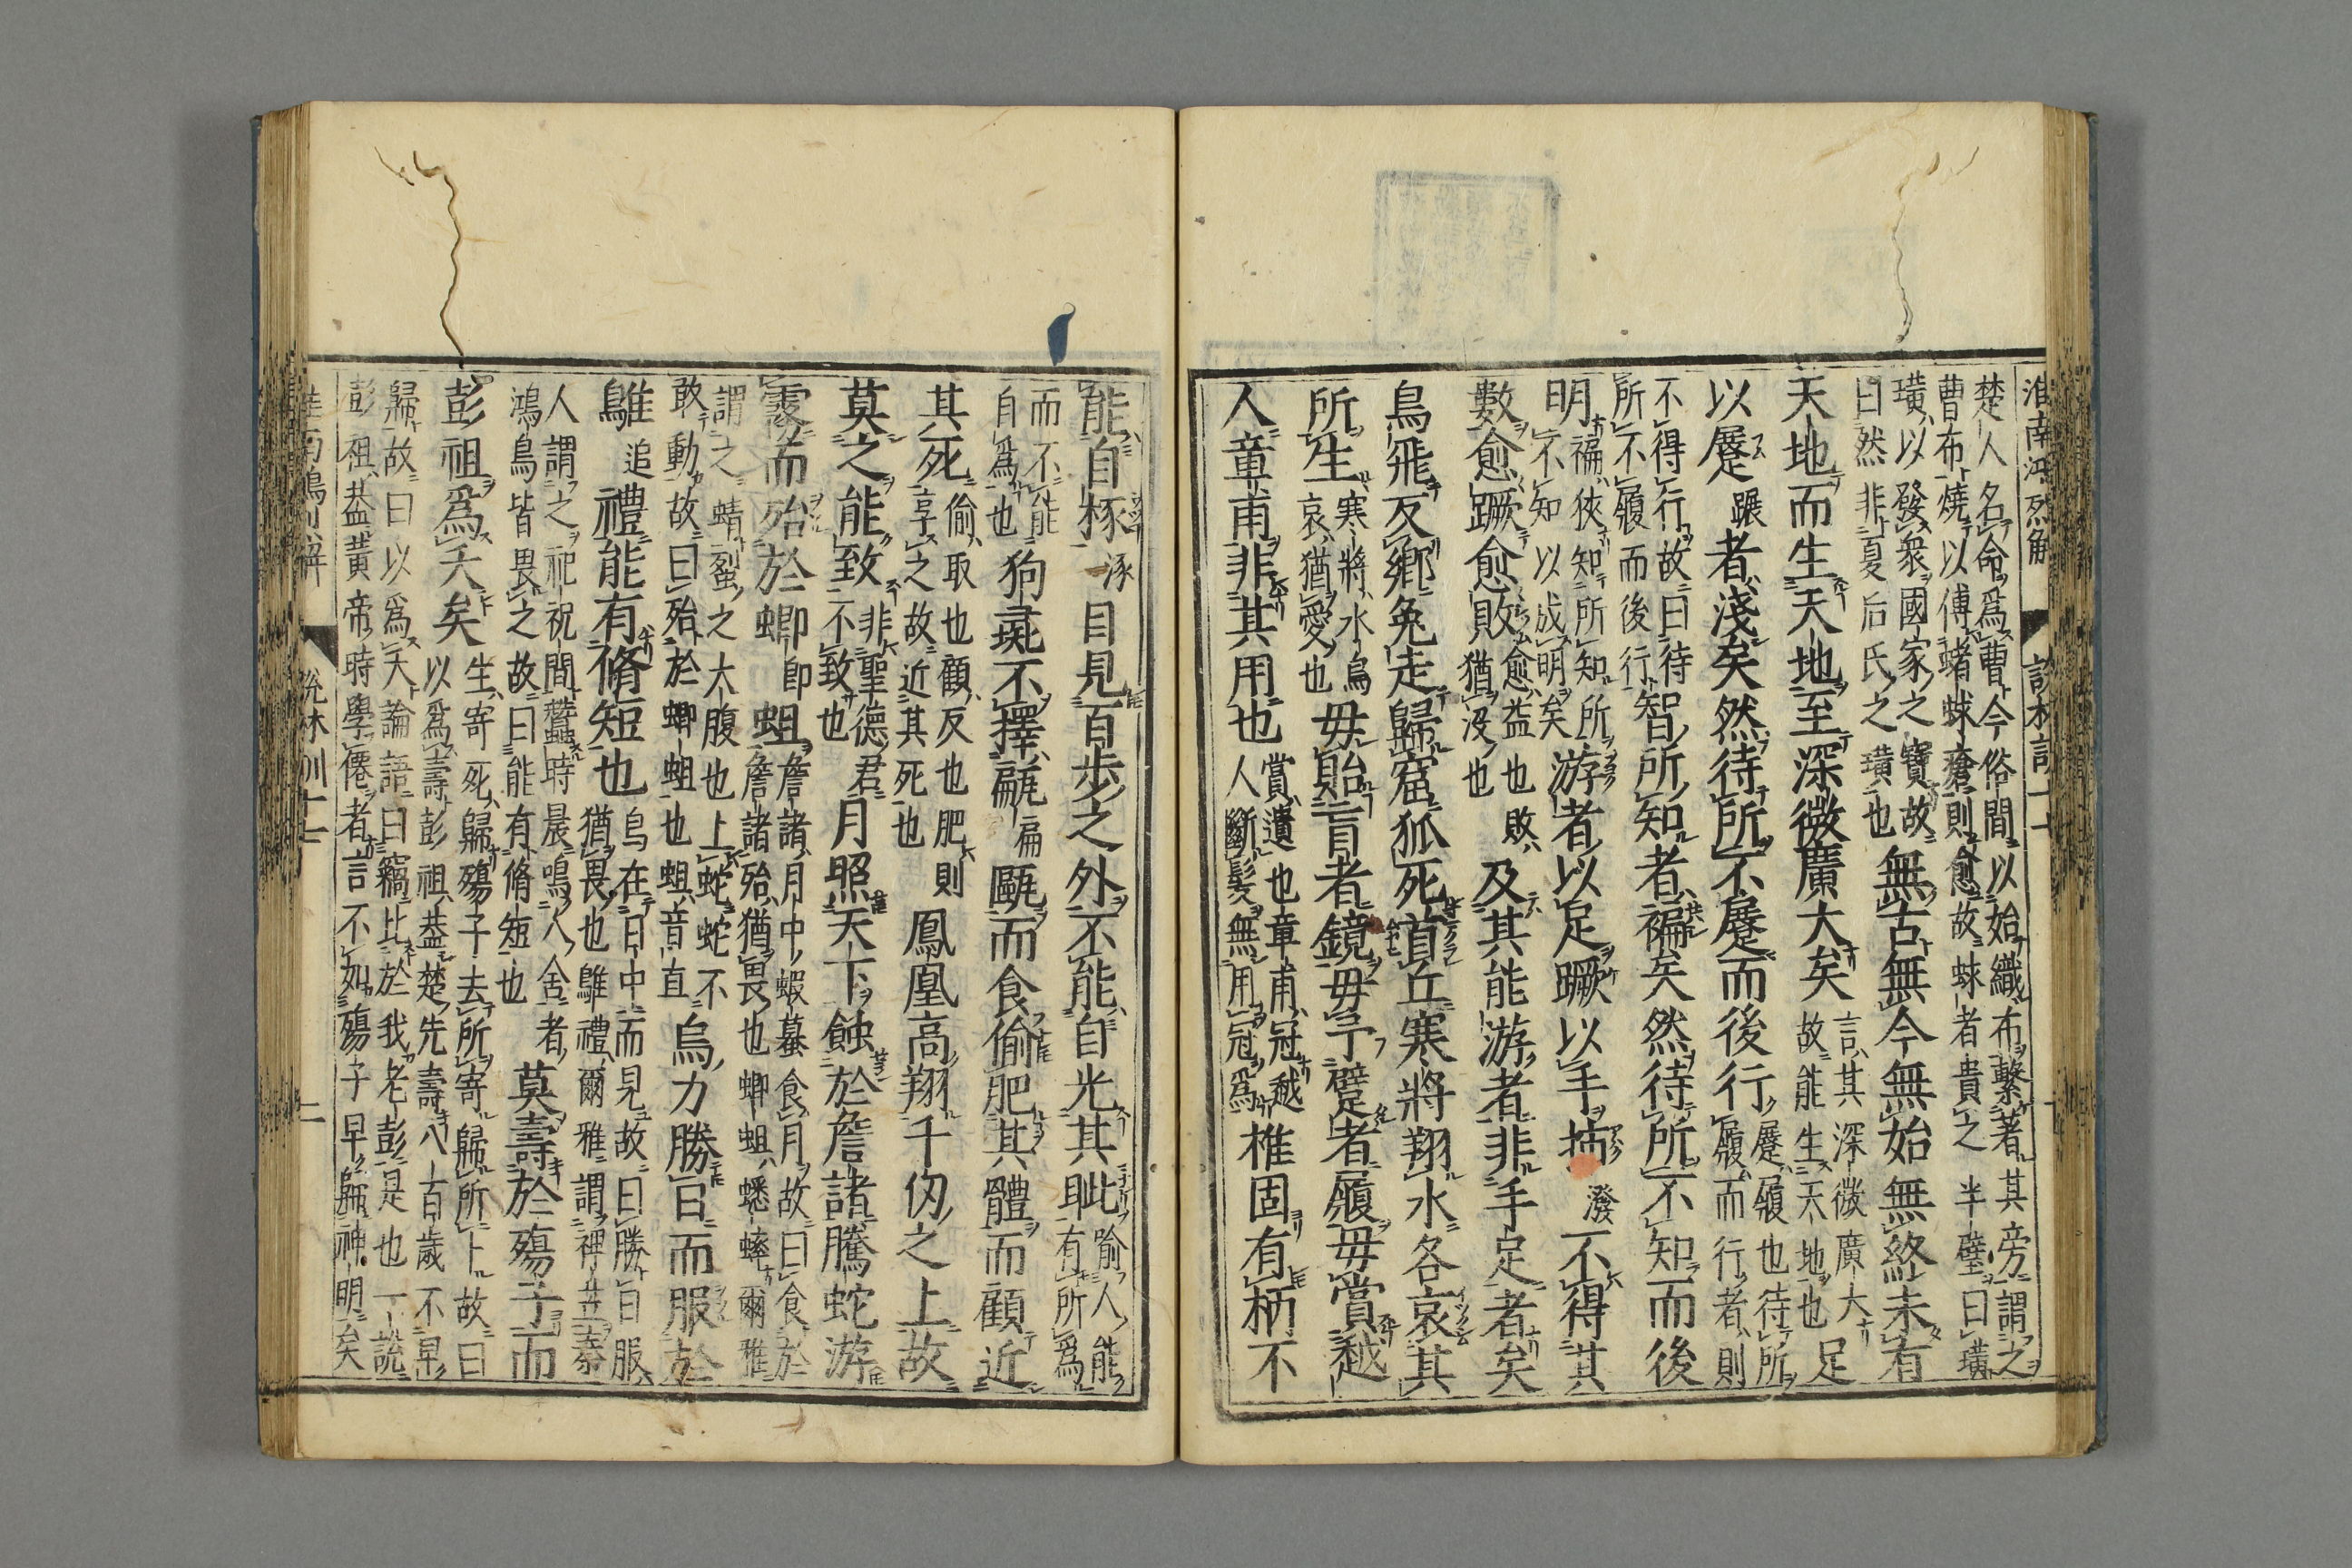 淮南鴻烈解 說林訓十七
楚人名命爲曹今俗間以始織布繫著其旁謂之
曹布燒以傅蝫蛷瘡則愈故蛷者貴之半璧曰璜
璜以發衆國家之寶故
曰然非夏后氏之璜也
無古無今無始無終未有
天地而生天地至深微廣大矣
言其深微廣大
故能生天地也
足
以蹍
蹍
者淺矣然待所不蹍而後行
蹍履也待所
履而行者則
不得行故曰待
所不履而後行
智所知者褊矣然待所不知而後
明
褊狹知所知所
不知以成明矣
游者以足蹶以手㧊
潑
不得其
數愈蹶愈敗
愈益也敗
猶沒也
及其能游者非手足者矣
鳥飛反鄉兔走歸窟狐死首丘寒將翔水各哀其
所生
寒將水鳥
哀猶愛也
毋貽盲者鏡毋予躄者履毋賞越
人章甫非其用也
賞遺也章甫冠越
人斷髮無用冠爲
椎固有柄不
能自椓
涿
目見百步之外不能自光其眦
喻人能
有所爲
而不能
自爲也
狗彘不擇甂
扁
甌而食偷肥其體而顧近
其死
偷取也顧反也肥則
享之故近其死也
鳳凰高翔千仞之上故
莫之能致
非聖德君
不致也
月照天下蝕於詹諸騰蛇游
霧而殆於蝍
卽
蛆
詹諸月中蝦蟇食月故曰食於
詹諸殆猶畏也蝍蛆蟋蟀爾雅
謂之蜻蛚之大腹也上蛇蛇不
敢動故曰殆於蝍蛆也蛆音直
烏力勝日而服於
鵻
追
禮能有脩短也
烏在日中而見故曰勝日服
猶畏也鵻禮爾雅謂裨苙秦
人謂之祀祝間蠶時晨鳴人舍者
鴻鳥皆畏之故曰能有脩短也
莫壽於殤子而
彭祖爲夭矣
生寄死歸殤子去所寄歸所上故曰
以爲壽彭祖蓋楚先壽八百歲不早
歸故曰以爲夭論語曰竊比於我老彭是也一說
彭祖蓋黃帝時學僊者言不如殤子早歸神明矣
淮南鴻烈解 說林訓十七 二